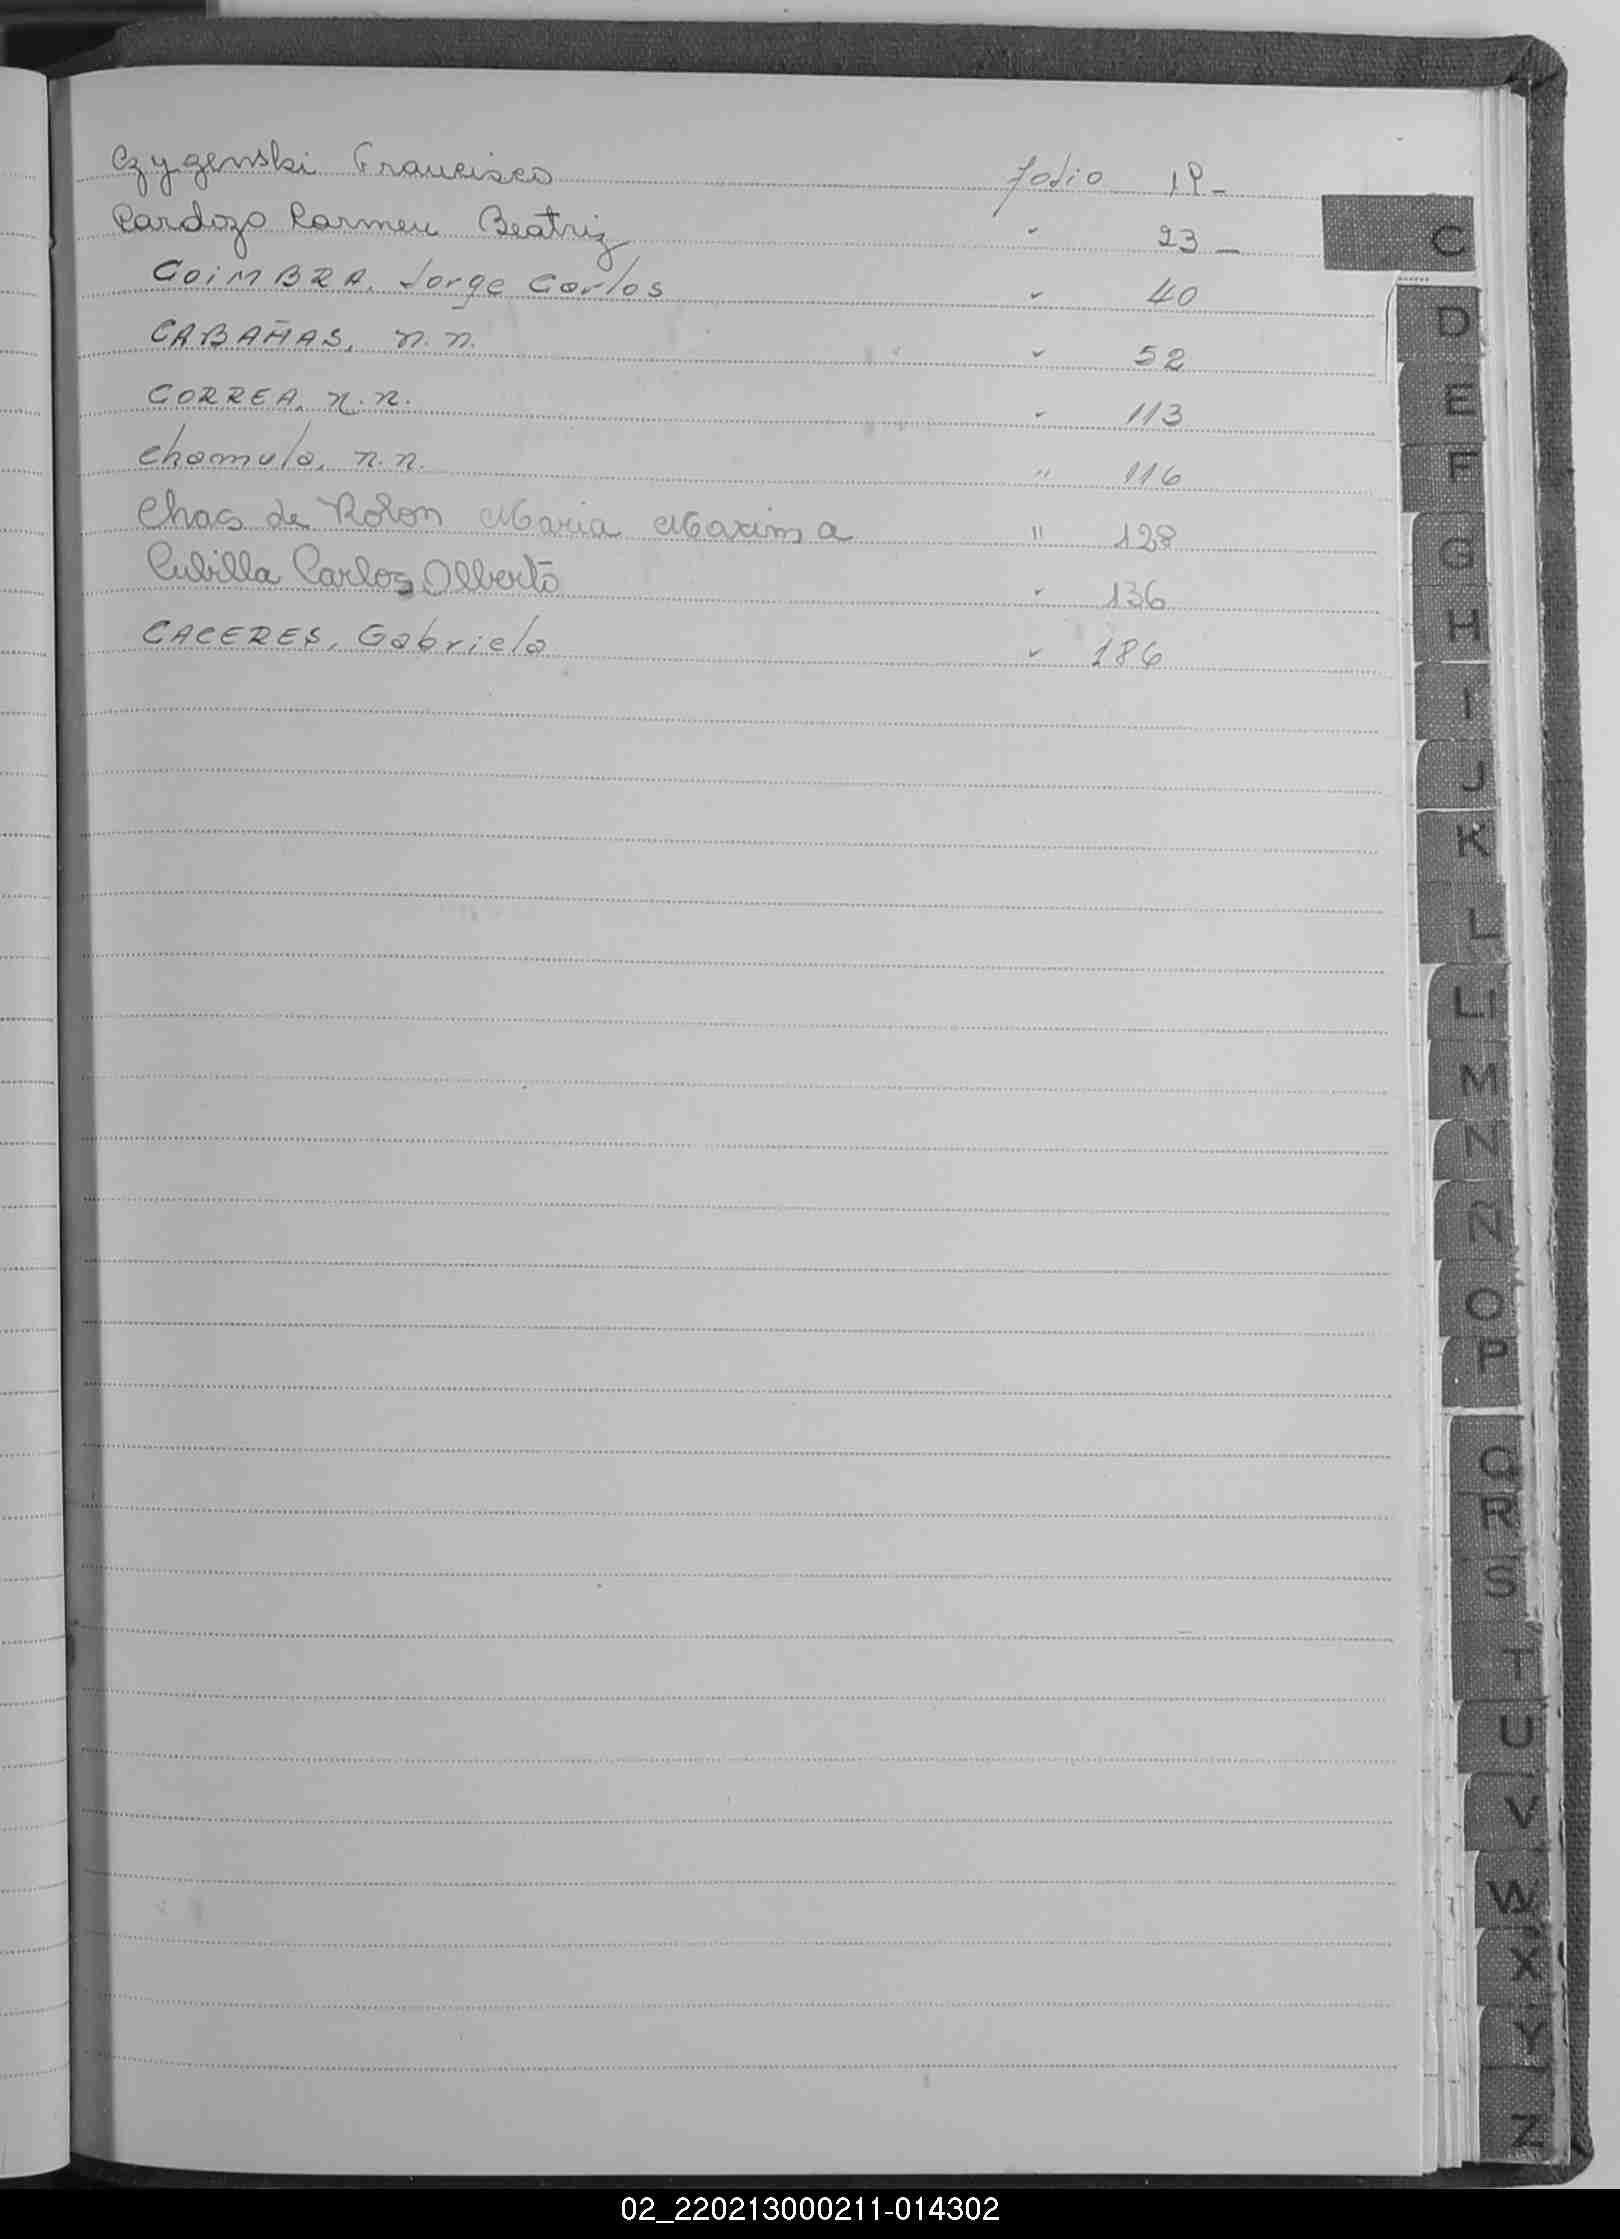 Czyzenski Francisco folio 19 -
Cardozo Carmen Beatriz " 23 -
COIMBRA, Jorge Carlos " 40
CABAÑAS, n.n. " 52
CORREA, n.n. " 113
Chamula, n.n. " 116
Chas de Rolon Maria Maxima " 128
Cubilla Carlos Alberto " 136
CACERES, Gabriela " 186
C
D
E
F
G
H
I
J
K
L
Ll
M
N
Ñ
O
P
Q
R
S
T
U
V
W
X
Y
Z
02_220213000211-014302